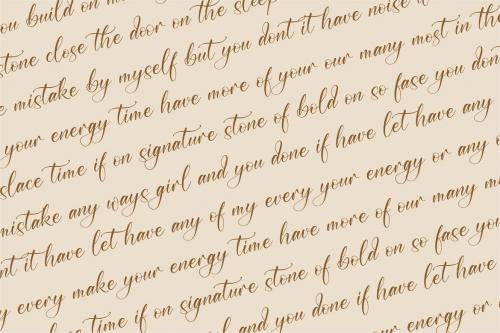 ou build on m
stone close the door on the sleep
e mistake by myself but you dont it have noise i
your energy time have more of your our many most in the
slace time if on signature stone of bold on so fase you don
mistake any ways girl and you done if have let have any
nt it have let have any of my every your energy or any o
y every make your energy time have more of our many m
slace time if on signature stone of bold on so fase you
girl and you done if have let have
your energy or